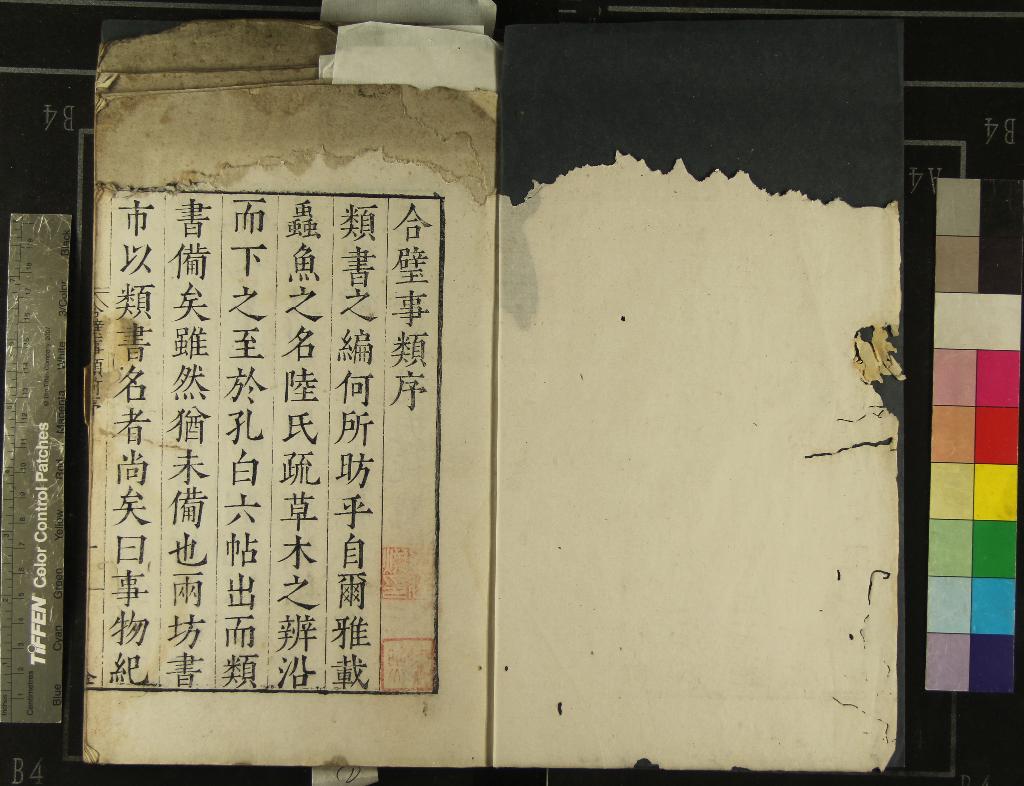 合璧事類序
類書之編何所昉乎自爾雅載
蟲魚之名陸氏疏草木之辨沿
而下之至於孔白六帖出而類
書備矣雖然猶未備也兩坊書
市以類書名者尚矣曰事物紀
TIFFEN Color Control Patches
Centimetres
Inches
Blue
Cyan
Green
Yellow
Red
Magenta
White
3/Color
Black
B4
B4
A4
B4